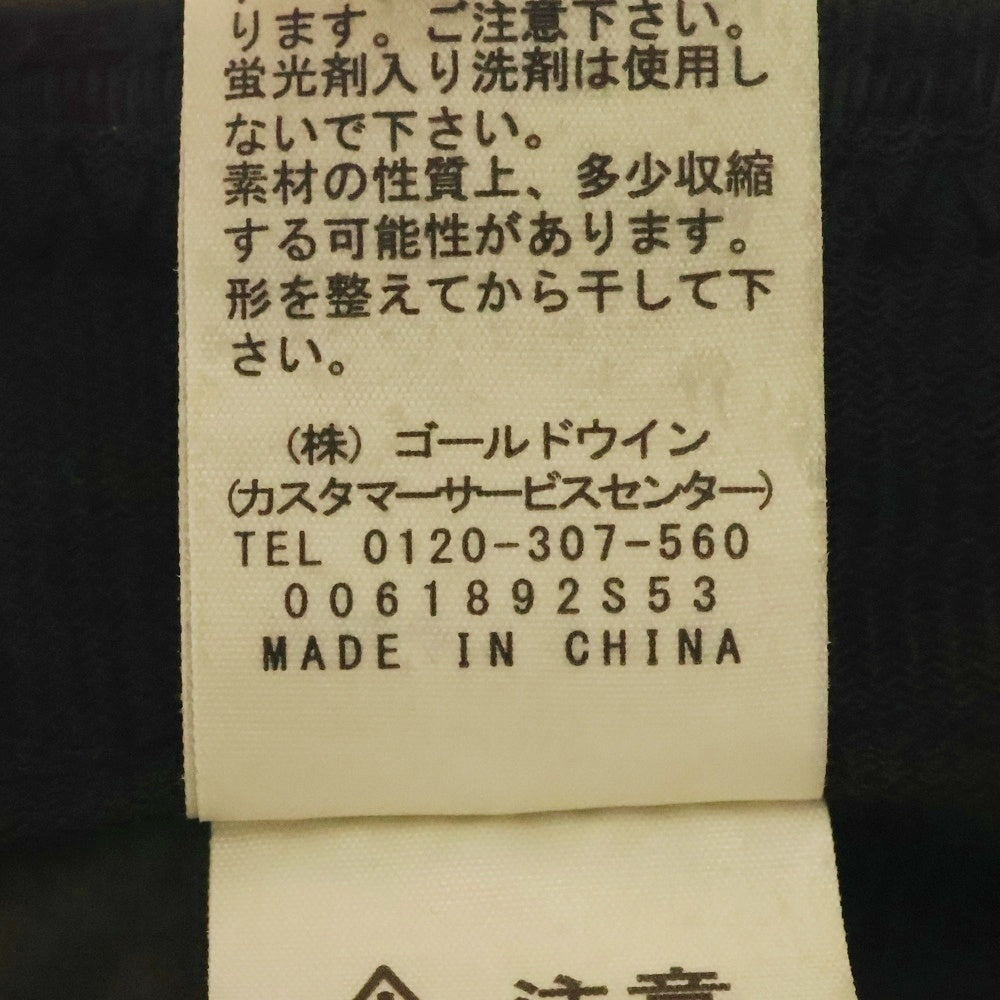 ります。ご注意下さい。
蛍光剤入り洗剤は使用し
ないで下さい。
素材の性質上、多少収縮
する可能性があります。
形を整えてから干して下
さい。
(株) ゴールドウイン
(カスタマーサービスセンター)
TEL 0120-307-560
0061892S53
MADE IN CHINA
注意